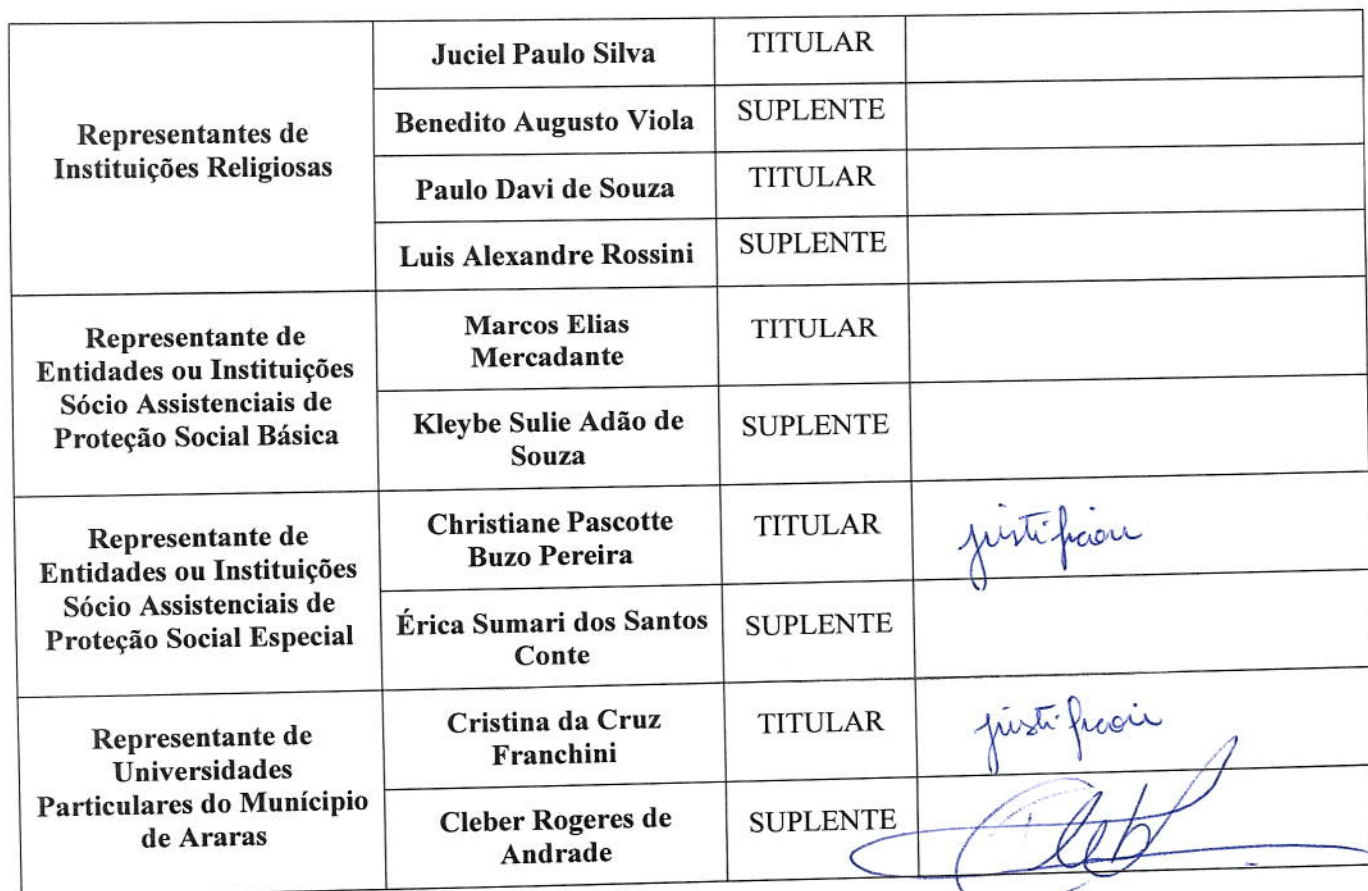 Representantes de
Instituições Religiosas
Juciel Paulo Silva
TITULAR
Benedito Augusto Viola
SUPLENTE
Paulo Davi de Souza
TITULAR
Luis Alexandre Rossini
SUPLENTE
Representante de
Entidades ou Instituições
Sócio Assistenciais de
Proteção Social Básica
Marcos Elias
Mercadante
TITULAR
Kleybe Sulie Adão de
Souza
SUPLENTE
Representante de
Entidades ou Instituições
Sócio Assistenciais de
Proteção Social Especial
Christiane Pascotte
Buzo Pereira
TITULAR
justificou
Érica Sumari dos Santos
Conte
SUPLENTE
Representante de
Universidades
Particulares do Munícipio
de Araras
Cristina da Cruz
Franchini
TITULAR
justificou
Cleber Rogeres de
Andrade
SUPLENTE